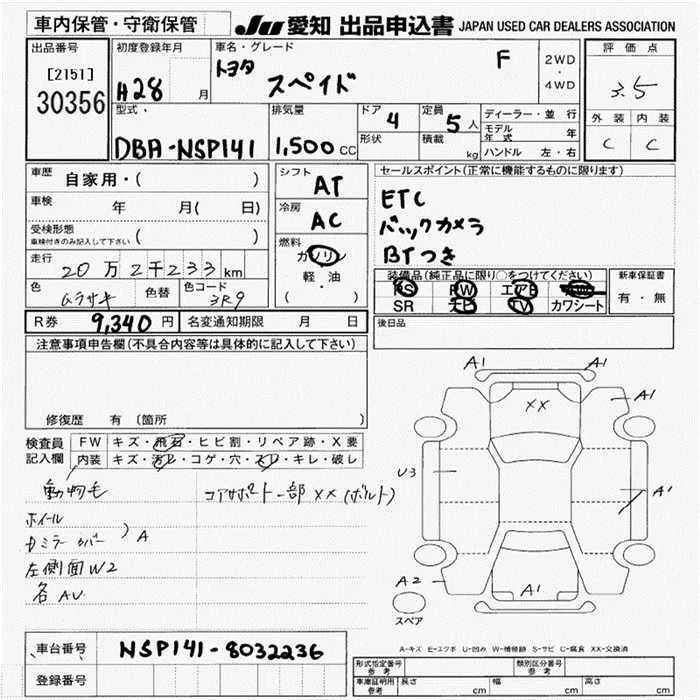 車内保管・守衛保管
JU 愛知 出品申込書 JAPAN USED CAR DEALERS ASSOCIATION
出品番号
[2151]
30356
初度登録年月
H28 月
車名・グレード
トヨタ スペイド F
2WD
・
4WD
評価点
3.5
外装 内装
C C
型式、
DBA-NSP141
排気量
1,500 CC
ドア 4
形状
定員 5 人
積載 kg
ディーラー・並行
モデル年式 年
ハンドル 左・右
車歴 自家用・( )
車検 年 月( 日)
受検形態
車検付きのみ記入して下さい ( )
走行
20万2千233km
色 ムラサキ 色替 色コード 3R9
シフト AT
冷房 AC
燃料
ガソリン
軽・油
( )
セールスポイント(正常に機能するものに限ります)
ETC
バックカメラ
BTつき
装備品(純正品に限り○をつけてください)
PS PW エアB
SR ナビ TV カワシート
新車保証書
有・無
R券 9,340円 名変通知期限 月 日
後日品
注意事項申告欄(不具合内容等は具体的に記入して下さい)
修復歴 有 〔箇所 〕
検査員
記入欄
FW キズ・飛石・ヒビ割・リペア跡・X要
内装 キズ・汚レ・コゲ・穴・スレ・キレ・破レ
動物毛
コアサポート一部XX(ボルト)
ホイール
ドミラーカバー ) A
左側面W2
各AU
A1 A1
XX
A1
U3
A1
A2
A1
スペア
A-キズ E-エクボ U-凹み W-補修跡 S-サビ C-腐食 XX-交換済
車台番号 NSP141-8032236
登録番号
形式指定番号
参考
類別区分番号
参考
車庫証明用
参考
長さ cm 幅 cm 高さ cm